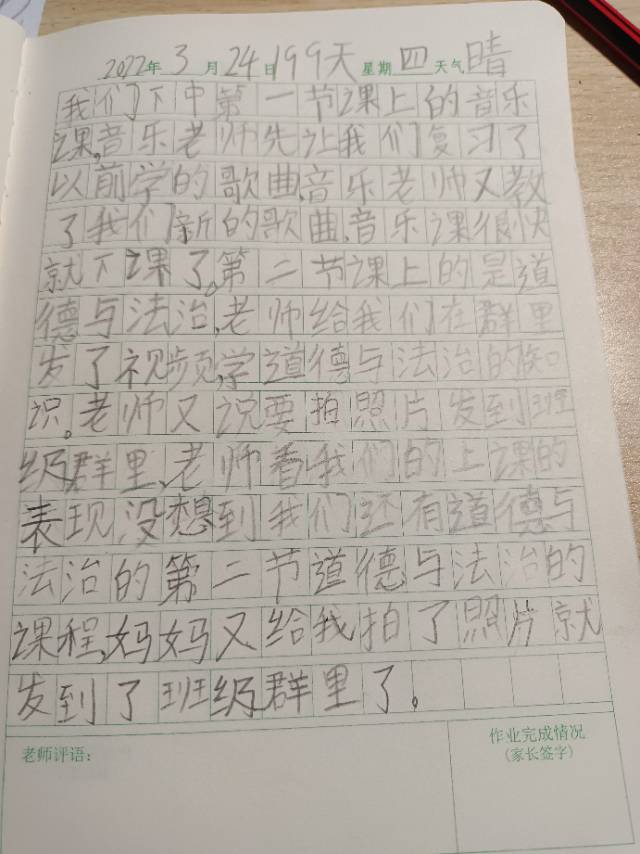 2022年3月24日199天 星期四天气晴
我们下中第一节课上的音乐
课,音乐老师先让我们复习了
以前学的歌曲,音乐老师又教
了我们新的歌曲,音乐课很快
就下课了。第二节课上的是道
德与法治,老师给我们在群里
发了视频,学道德与法治的知
识。老师又说要拍照片发到班
级群里,老师看我们的上课的
表现没想到我们还有道德与
法治的第二节道德与法治的
课程,妈妈又给我拍了照片就
发到了班级群里了。
老师评语:
作业完成情况
(家长签字)